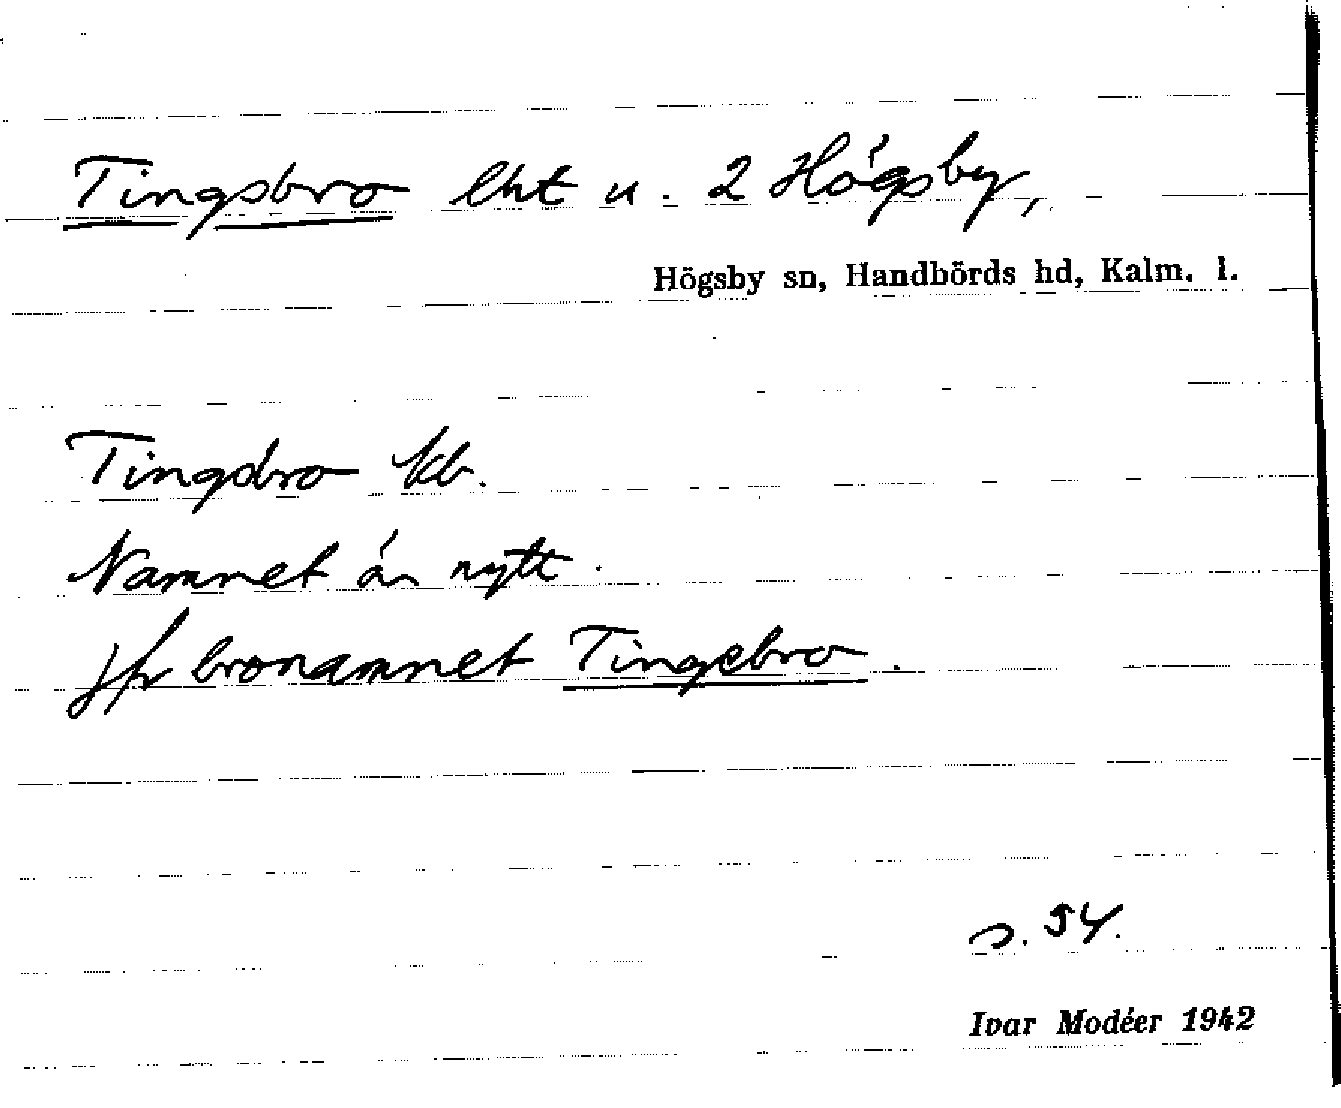 Tingsbro lht u. 2 Högsby,
Högsby sn, Handbörds hd, Kalm. l.
Tingsbro kb.
Namnet är nytt.
Jfr bronamnet Tingebro.
s. 54.
Ivar Modéer 1942